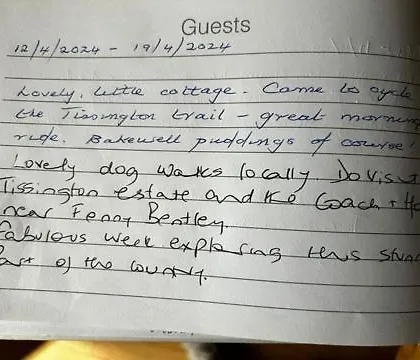 Guests
12/4/2024 - 19/4/2024
Lovely, little cottage. Came to cycle
the Tissington trail - great morning
ride. Bakewell puddings of course!
Lovely dog walks locally Do visit
Tissington estate and the Coach + Ho
near Fenny Bentley.
Fabulous week exploring this stun
Part of the country.